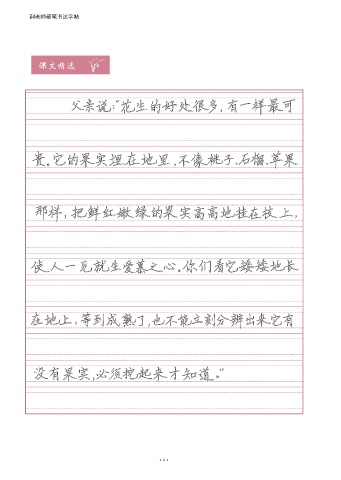 田老师硬笔书法字帖
课文精选
父亲说:“花生的好处很多,有一样最可
贵。它的果实埋在地里,不像桃子、石榴、苹果
那样,把鲜红嫩绿的果实高高地挂在枝上,
使人一见就生爱慕之心。你们看它矮矮地长
在地上,等到成熟了,也不能立刻分辨出来它有
没有果实,必须挖起来才知道。”
·4·